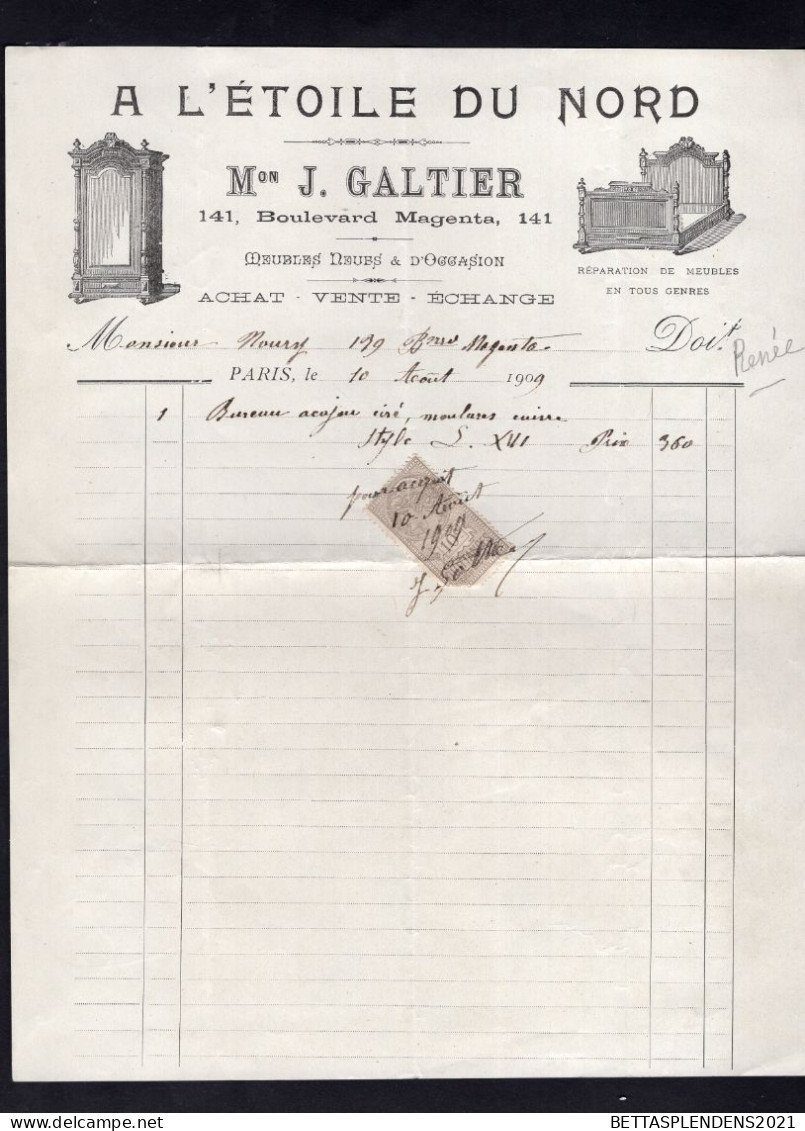 A L'ÉTOILE DU NORD
Mon J. GALTIER
141, Boulevard Magenta, 141
MEUBLES NEUFS & D'OCCASION
ACHAT - VENTE - ÉCHANGE
RÉPARATION DE MEUBLES
EN TOUS GENRES
Monsieur Noury 139 Magenta Doit
Renée
PARIS, le 10 Août 1909
1 Bureau acajou ciré, moulures cuivre
Style L. XVI Prix 360
pour acquit
10 Août
1909
BETTASPLENDENS2021